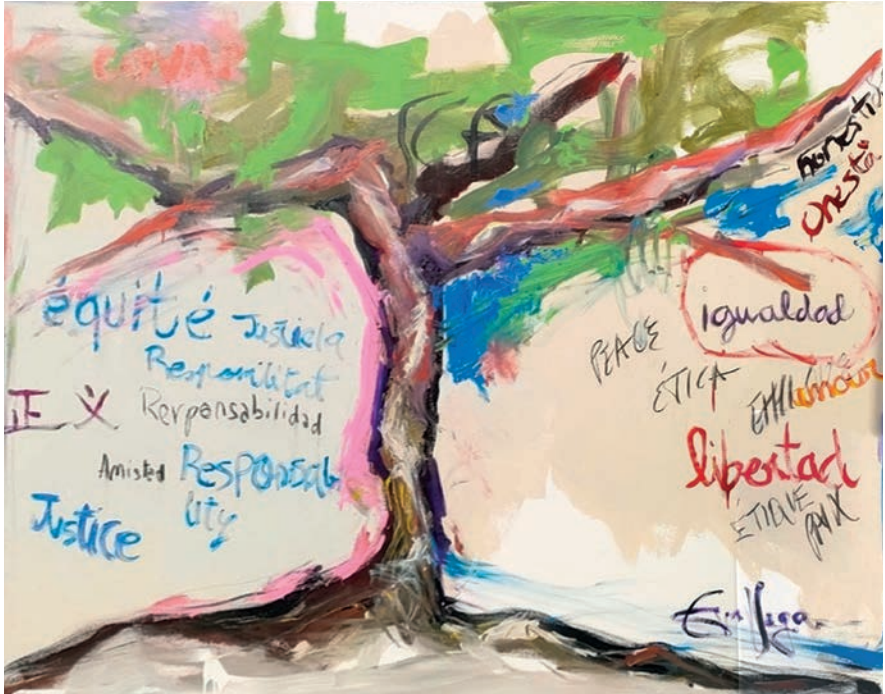 équité
Justicia
Responsabilidad
正义
Amisted
Responsab
lity
Justice
Honestid
Onestà
igualdad
PEACE
ÉTICA
amour
libertad
ÉTIQUE
PAIX